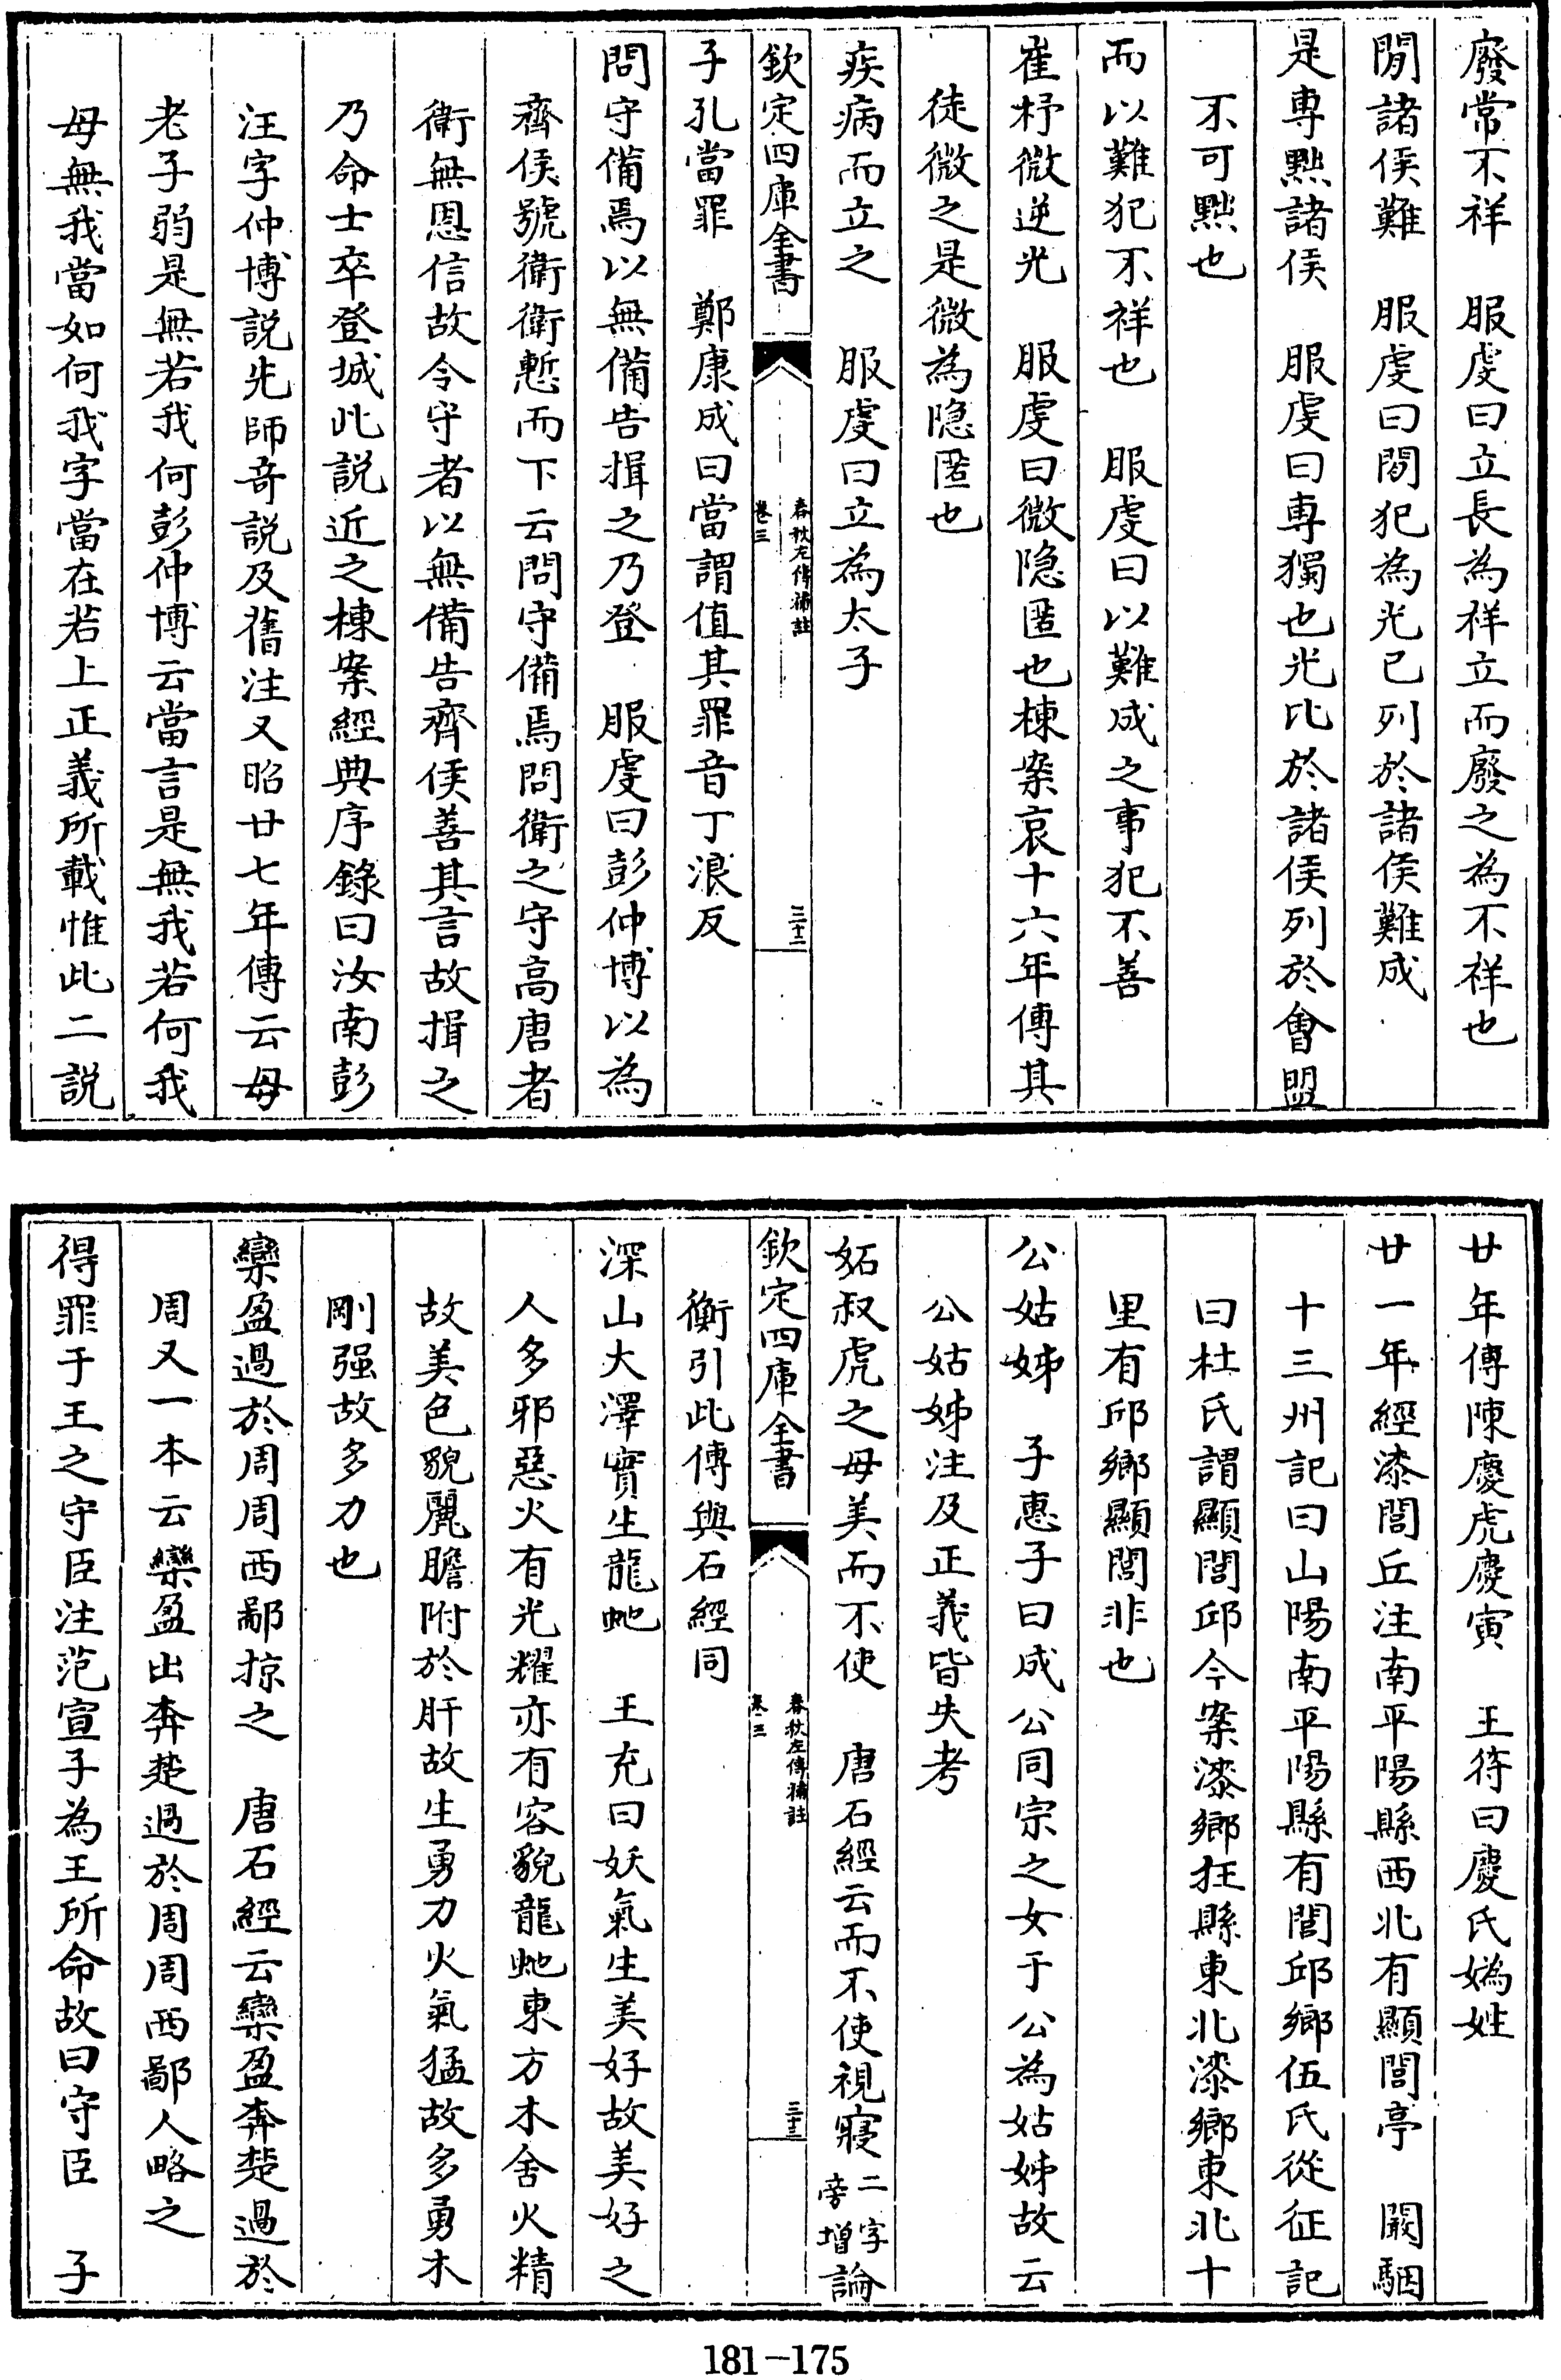 廢常不祥　服虔曰立長為祥立而廢之為不祥也
閒諸侯難　服虔曰閒犯為光已列於諸侯難成
是專黜諸侯　服虔曰專獨也光比於諸侯列於會盟
不可黜也
而以難犯不祥也　服虔曰以難成之事犯不善
崔杼微逆光　服虔曰微隱匿也棟案哀十六年傳其
徒微之是微為隱匿也
疾病而立之　服虔曰立為太子
欽定四庫全書
春秋左傳補註
卷三
三十二
子孔當罪　鄭康成曰當謂值其罪音丁浪反
問守備焉以無備告揖之乃登　服虔曰彭仲博以為
齊侯號衛衛慙而下云問守備焉問衛之守高唐者
衛無恩信故令守者以無備告齊侯善其言故揖之
乃命士卒登城此説近之棟案經典序錄曰汝南彭
汪字仲博説先師奇説及舊注又昭廿七年傳云母
老子弱是無若我何彭仲博云當言是無我若何我
母無我當如何我字當在若上正義所載惟此二説
廿年傳陳慶虎慶寅　王符曰慶氏媯姓
廿一年經漆閭丘注南平陽縣西北有顯閭亭　闞駰
十三州記曰山陽南平陽縣有閭邱鄉伍氏從征記
曰杜氏謂顯閭邱今案漆鄉在縣東北漆鄉東北十
里有邱鄉顯閭非也
公姑姊　子惠子曰成公同宗之女于公為姑姊故云
公姑姊注及正義皆失考
妬叔虎之母美而不使　唐石經云而不使視寢二字旁增論
欽定四庫全書
春秋左傳補註
卷三
三十三
衡引此傳與石經同
深山大澤實生龍虵　王充曰妖氣生美好故美好之
人多邪惡火有光耀亦有容貌龍虵東方木舍火精
故美色貌麗膽附於肝故生勇力火氣猛故多勇木
剛强故多力也
欒盈過於周周西鄙掠之　唐石經云欒盈奔楚過於
周又一本云欒盈出奔楚過於周周西鄙人略之
得罪于王之守臣注范宣子為王所命故曰守臣　子
181—175